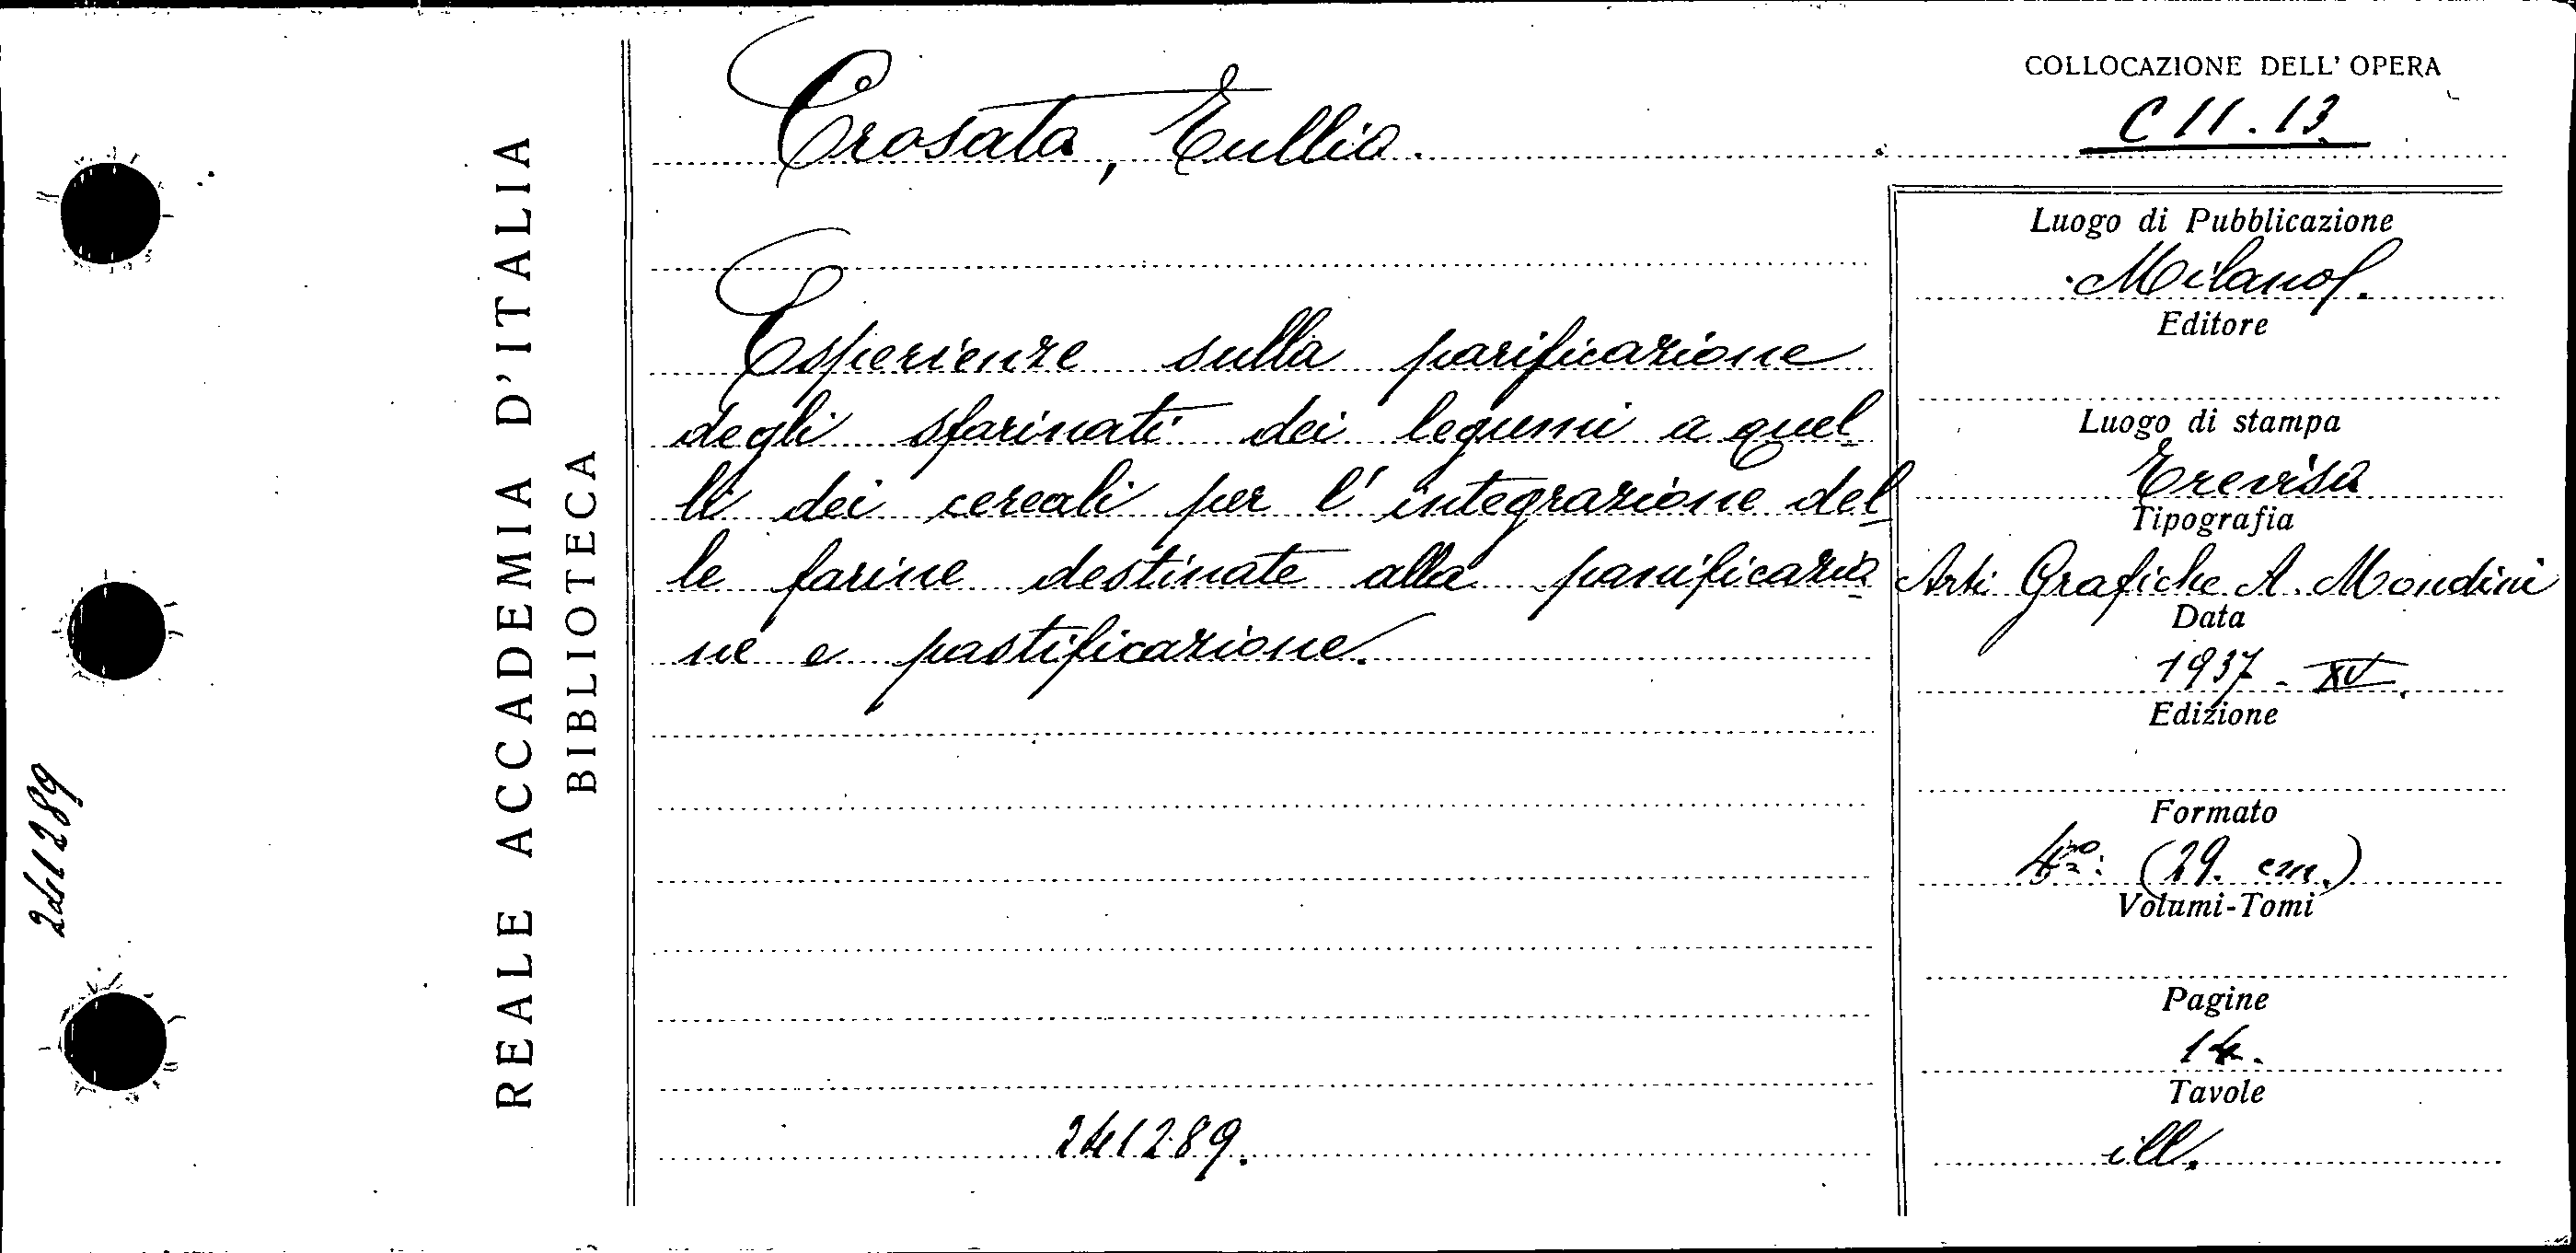 COLLOCAZIONE DELL' OPERA
C 11. 13.
Crosata, Tullia.
Esperienze sulla parificazione
degli sfarinati dei legumi a quel-
li dei cereali per l'integrazione del-
le farine destinate alla panificazio-
ne e pastificazione.
241289.
Luogo di Pubblicazione
Milano.
Editore
Luogo di stampa
Treviso
Tipografia
Arti Grafiche A. Mondini
Data
1937 - XV.
Edizione
Formato
4º: (29. cm.)
Volumi-Tomi
Pagine
14.
Tavole
ill.
REALE ACCADEMIA D'ITALIA
BIBLIOTECA
241289